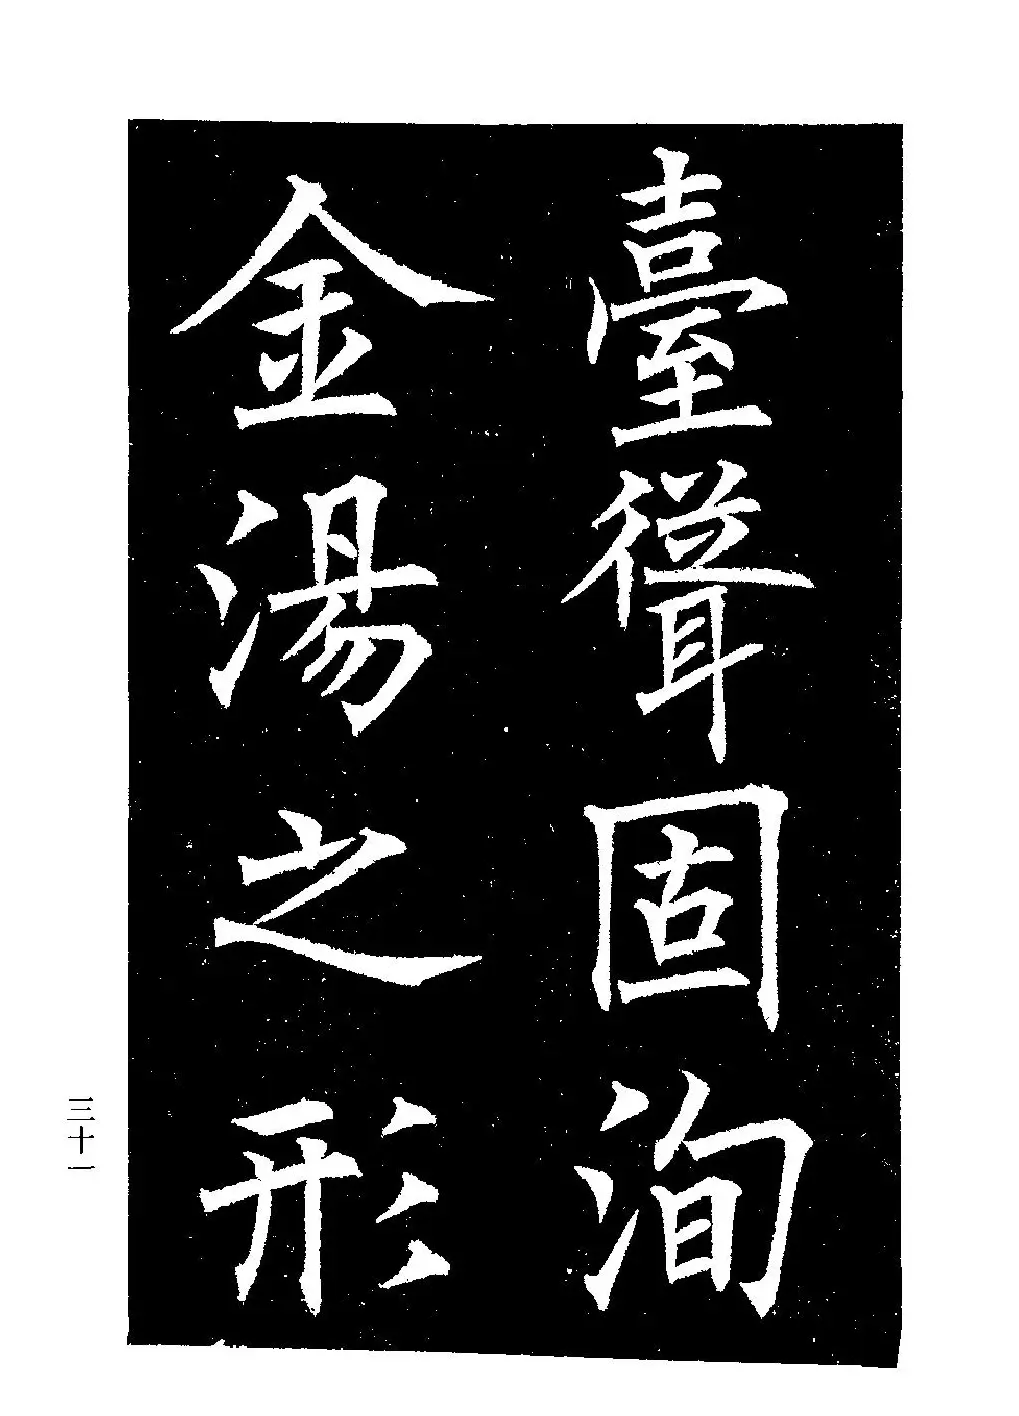 臺聳固洵
金湯之形
三十一